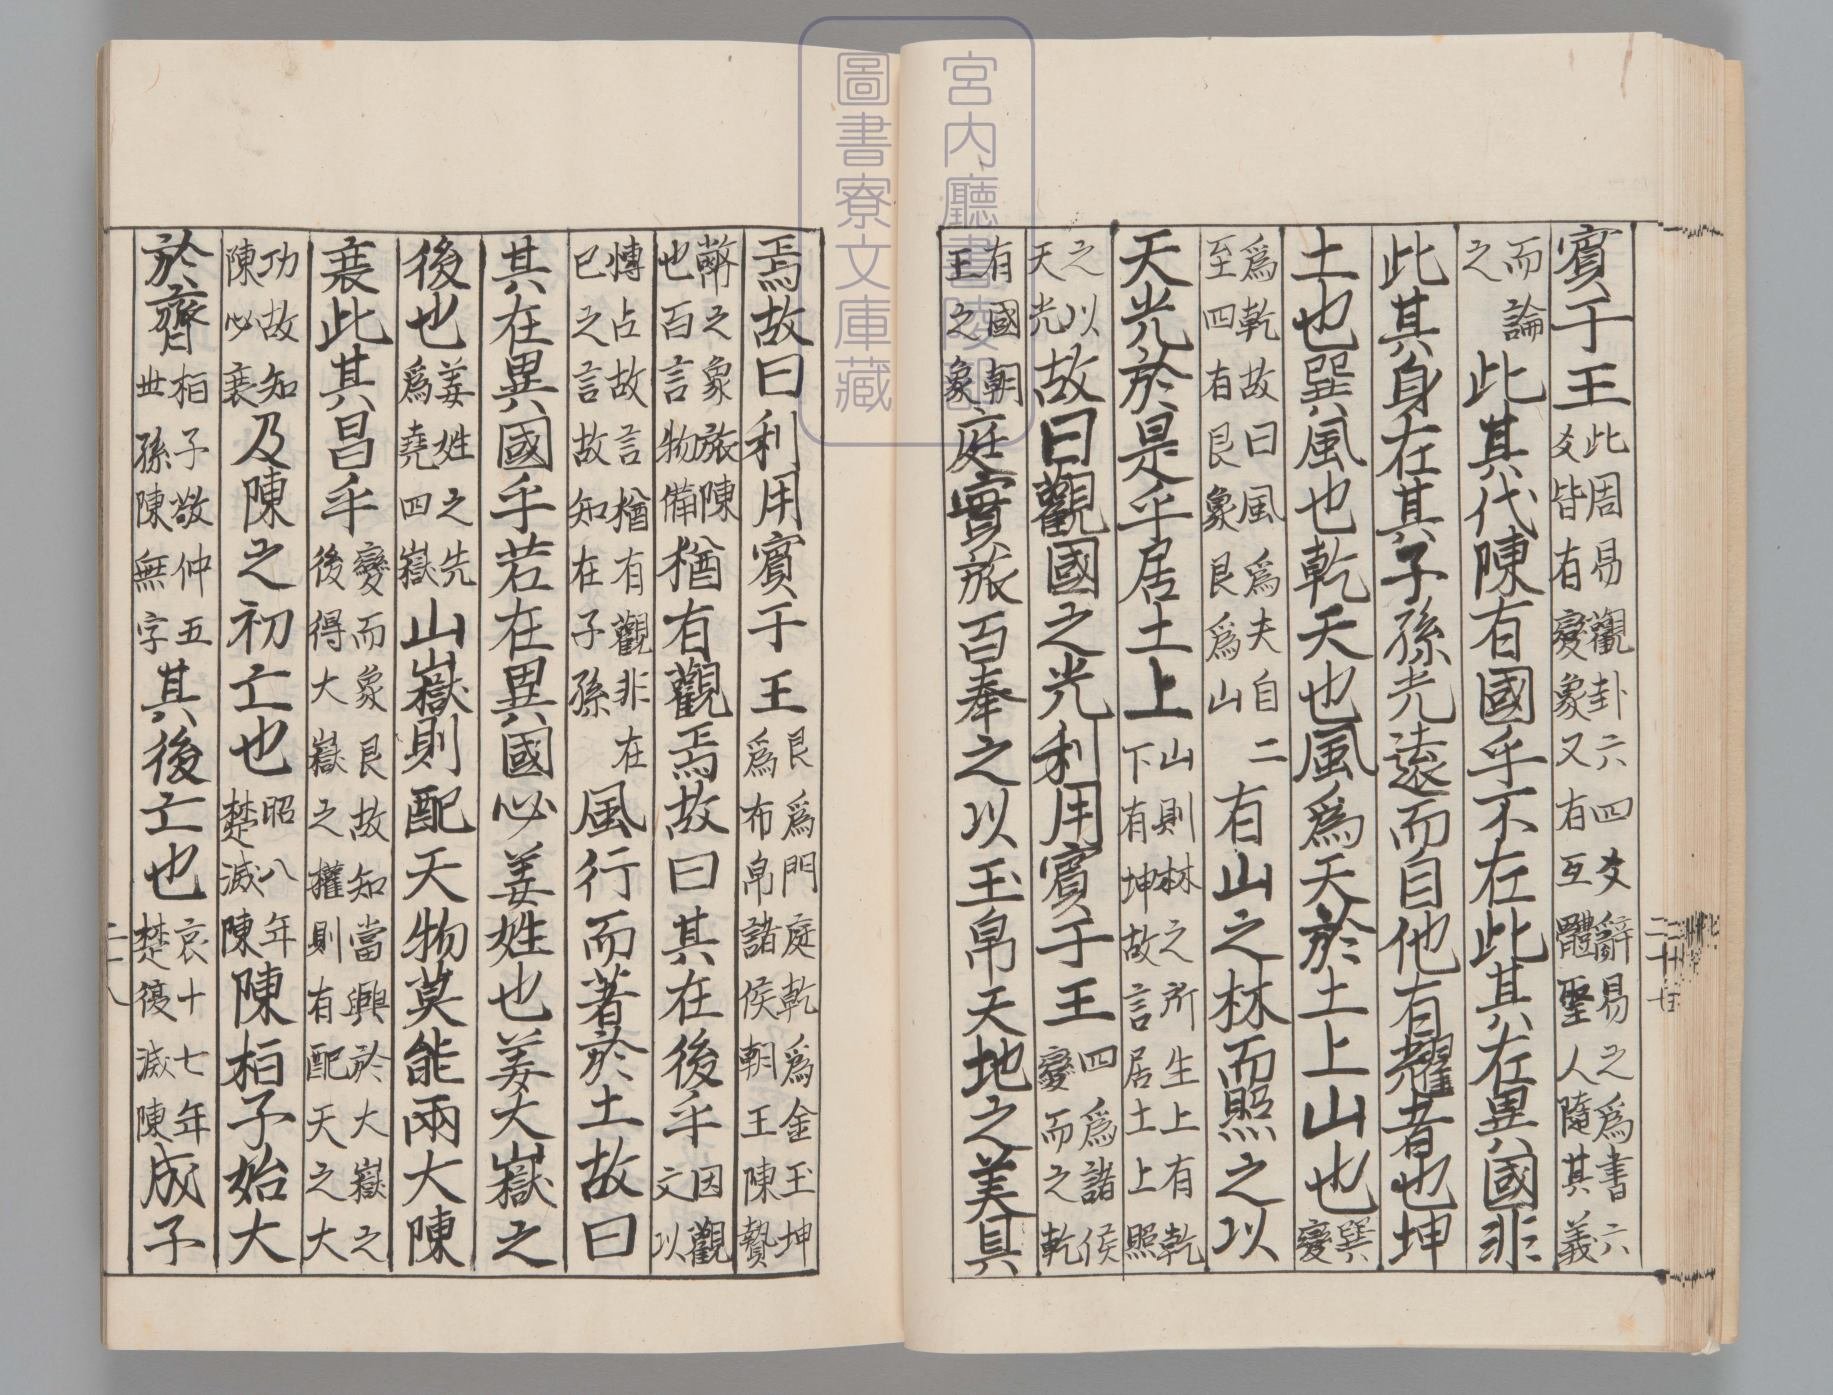 賓于王此周易觀卦六四爻辭易之爲書六爻皆有變象又有互體聖人隨其義
而論之此其代陳有國乎不在此其在異國非
此其身在其子孫光遠而自他有耀者也坤
土也巽風也乾天也風爲天於土上山也巽變
爲乾故曰風爲夫自二至四有艮象艮爲山有山之材而照之以
天光於是乎居土上山則材之所生上有乾下有坤故言居土上照
之以天光故曰觀國之光利用賓于王四爲諸侯變而之乾
有國朝王之象庭實旅百奉之以玉帛天地之美具
焉故曰利用賓于王艮爲門庭乾爲金玉坤爲布帛諸侯朝王陳贄
幣之象旅陳也百言物備猶有觀焉故曰其在後乎因觀文以
博占故言猶有觀非在已之言故知在子孫風行而著於土故曰
其在異國乎若在異國必姜姓也姜大嶽之
後也姜姓之先爲堯四嶽山嶽則配天物莫能兩大陳
衰此其昌乎變而象艮故知當興於大嶽之後得大嶽之權則有配天之大
功故知陳必衰及陳之初亡也昭八年楚滅陳陳桓子始大
於齊桓子敬仲五世孫陳無字其後亡也哀十七年楚復滅陳成子
宮内廳書陵部
圖書寮文庫藏